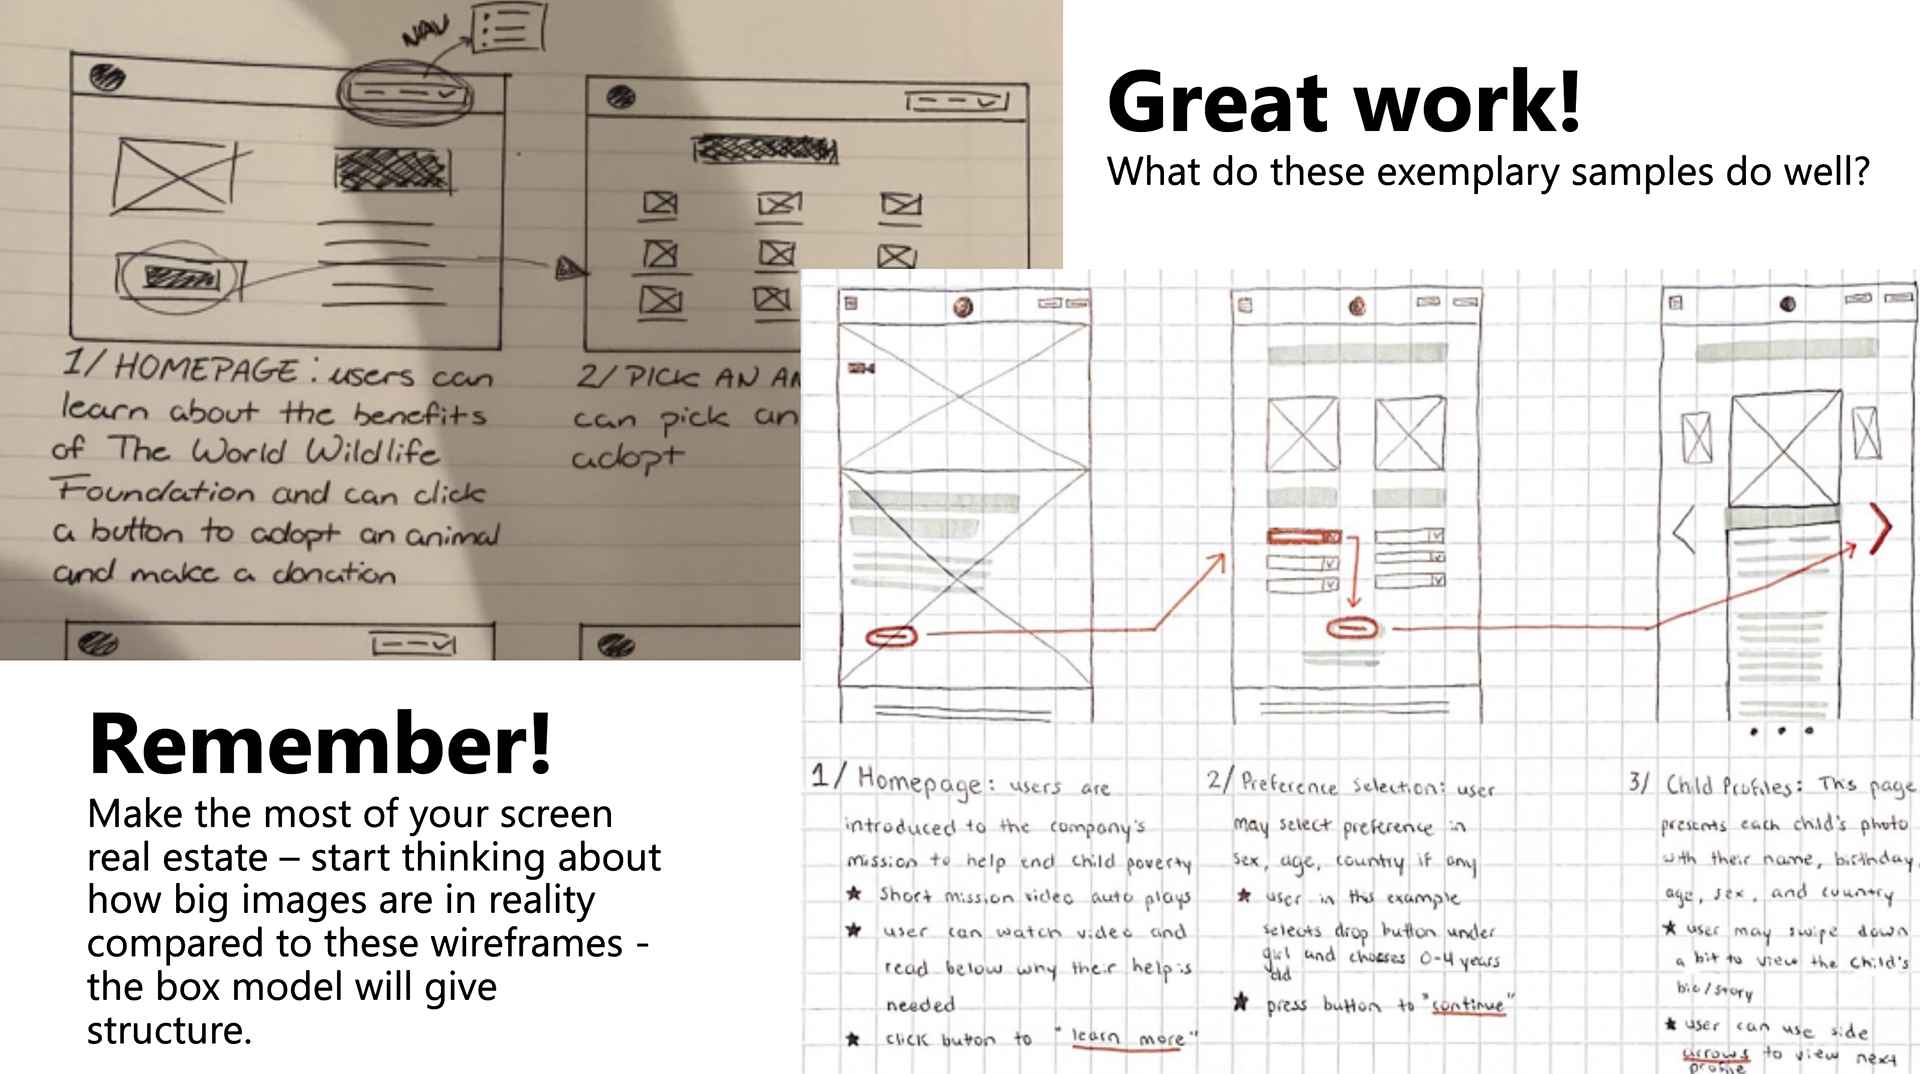 NAV
1/ HOMEPAGE: users can
learn about the benefits
of The World Wildlife
Foundation and can click
a button to adopt an animal
and make a donation
2/ PICK AN AN
can pick an
adopt
Great work!
What do these exemplary samples do well?
Remember!
Make the most of your screen
real estate – start thinking about
how big images are in reality
compared to these wireframes -
the box model will give
structure.
1/ Homepage: users are
introduced to the company's
mission to help end child poverty
★ Short mission video auto plays
★ user can watch video and
read below why their help is
needed
★ click button to "learn more"
2/ Preference Selection: user
may select preference in
sex, age, country if any
★ user in this example
selects drop button under
girl and chooses 0-4 years
old
★ press button to "continue"
3/ Child Profiles: This page
presents each child's photo
with their name, birthday,
age, sex, and country
★ user may swipe down
a bit to view the child's
bio/story
★ user can use side
arrows to view next
profile